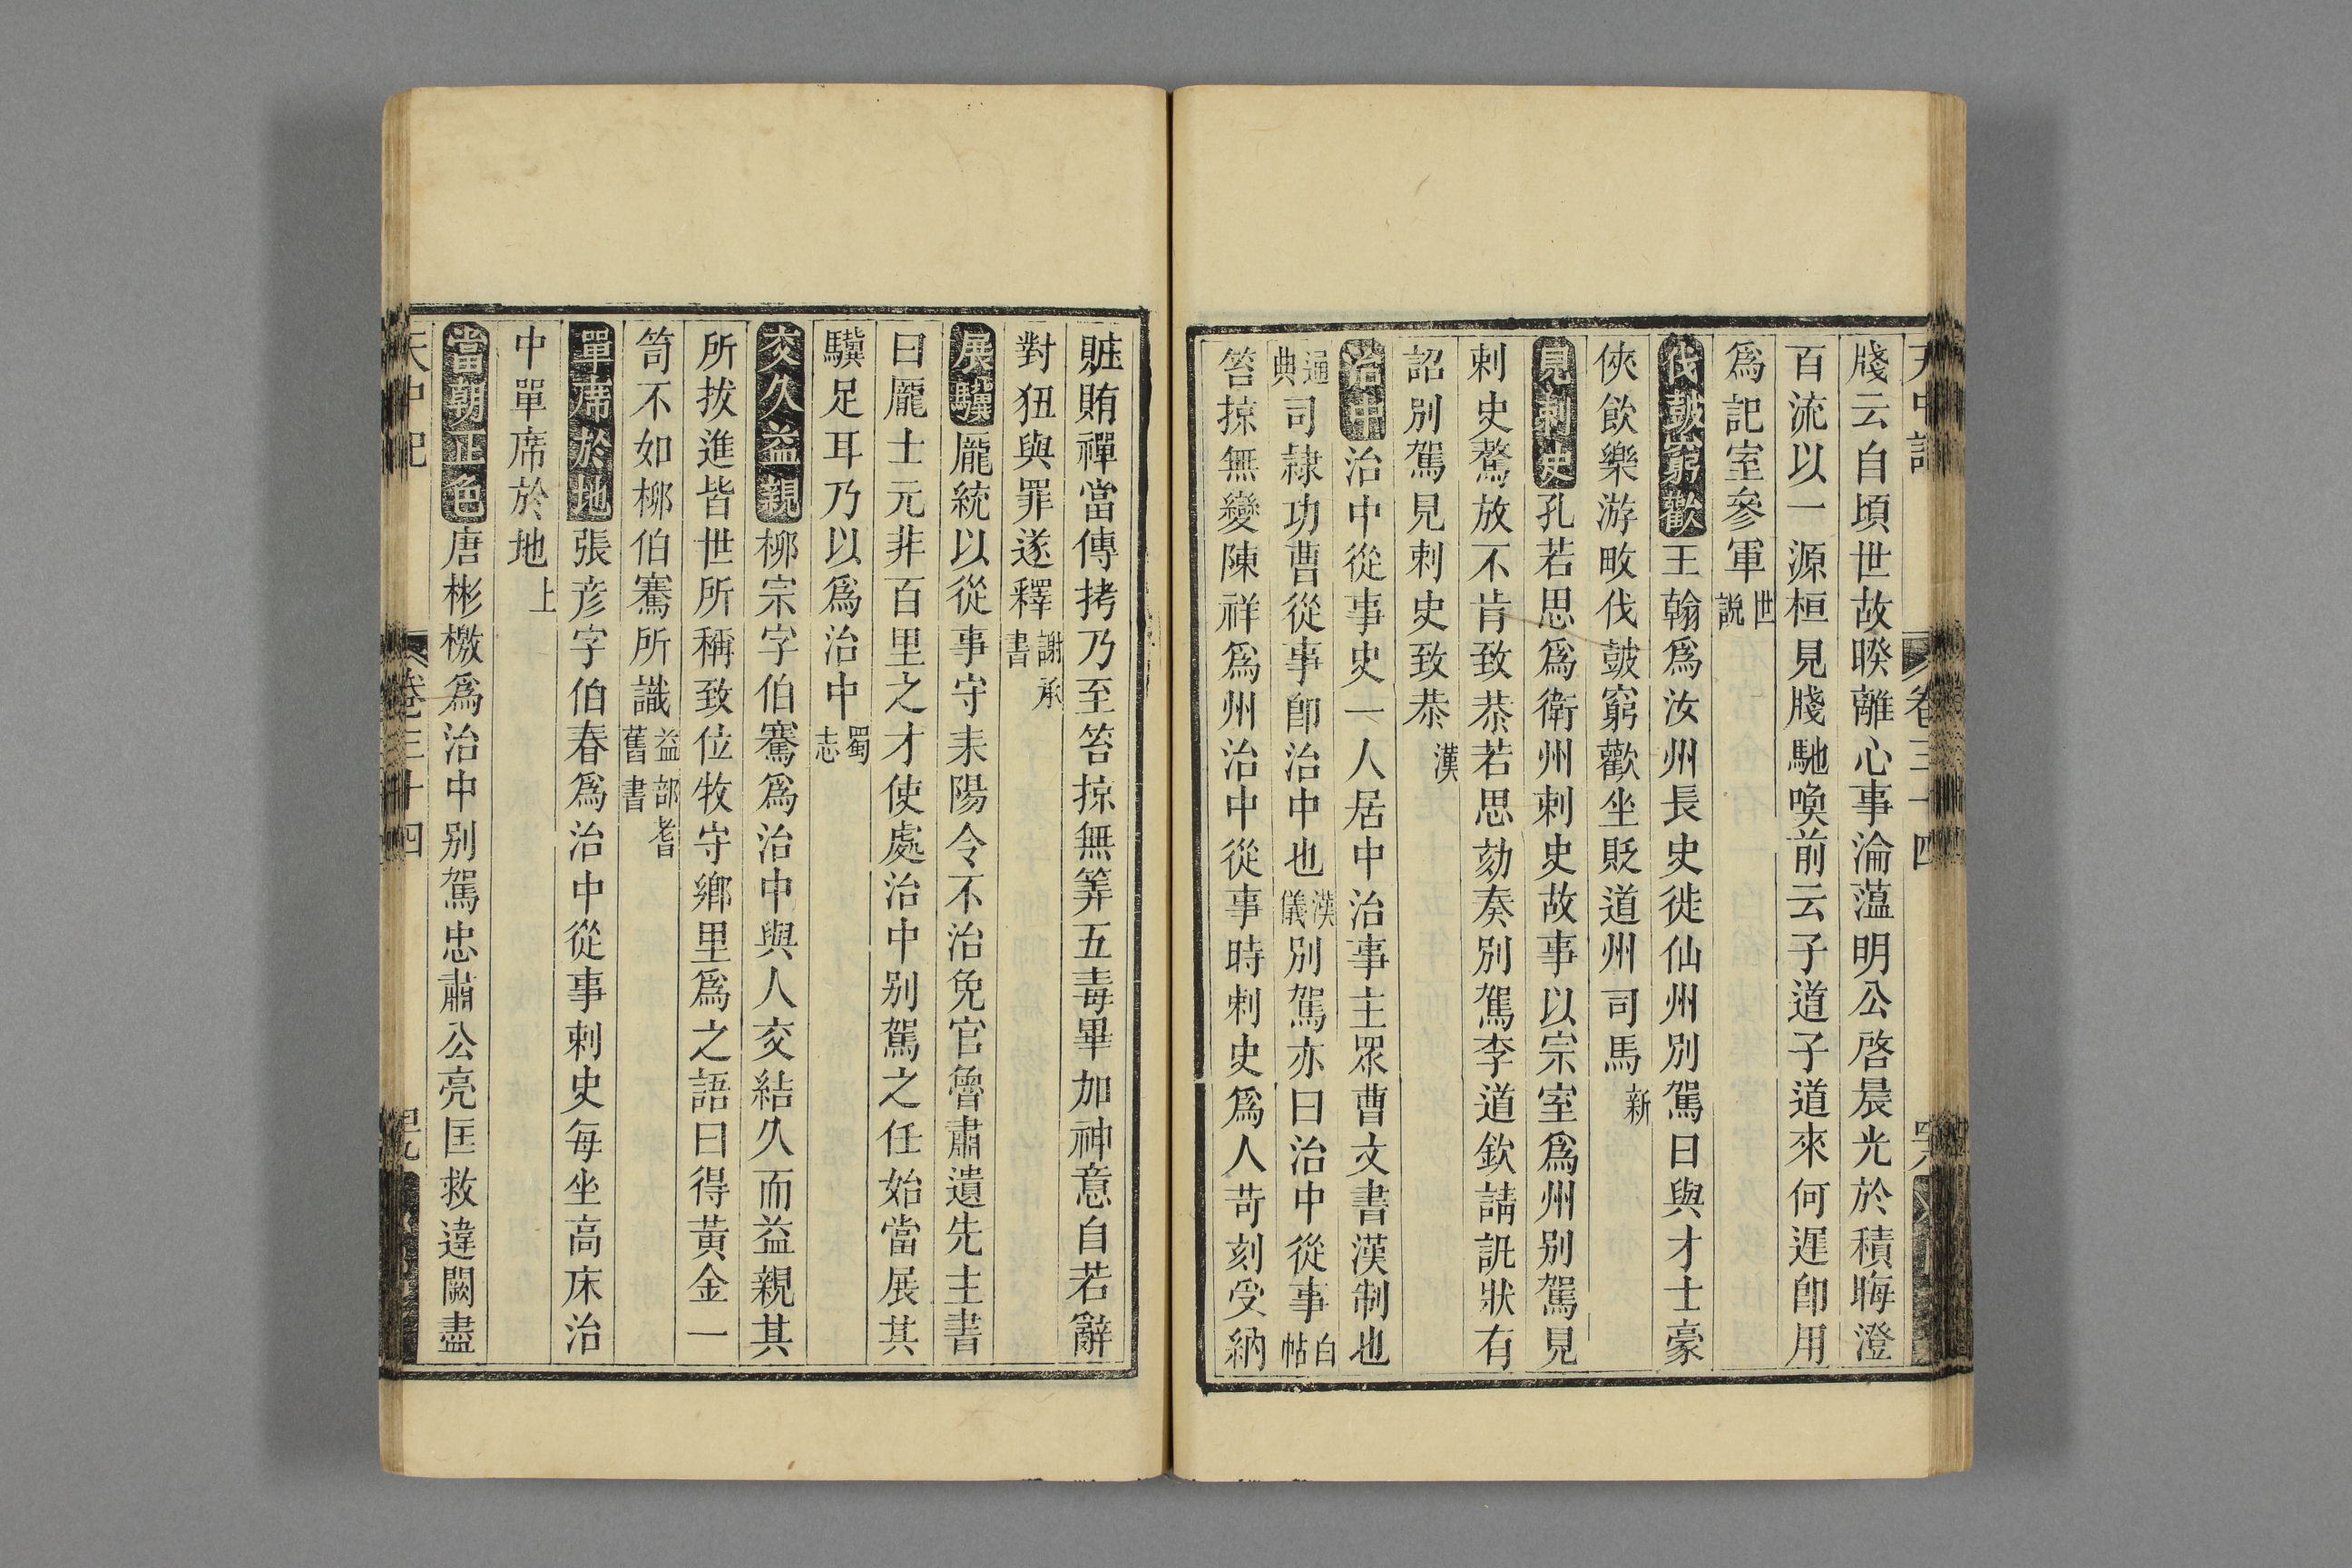 牋云自頃世故睽離心事淪薀明公啓晨光於積晦澄
百流以一源桓見牋馳喚前云子道子道來何遲卽用
爲記室參軍世說
伐鼓窮歡王翰爲汝州長史徙仙州別駕日與才士豪
俠飮樂游畋伐鼓窮歡坐貶道州司馬新
見刺史孔若思爲衛州刺史故事以宗室爲州別駕見
刺史驁放不肯致恭若思劾奏別駕李道欽請訊狀有
詔別駕見刺史致恭漢
治中治中從事史一人居中治事主眾曹文書漢制也
通典司隸功曹從事卽治中也漢儀別駕亦曰治中從事白帖
笞掠無變陳祥爲州治中從事時刺史爲人苛刻受納
賍賄禪當傳拷乃至笞掠無筭五毒畢加神意自若辭
對狃與罪遂釋謝承書
展驥龐統以從事守耒陽令不治免官魯肅遺先主書
曰龐士元非百里之才使處治中別駕之任始當展其
驥足耳乃以爲治中蜀志
交久益親柳宗字伯騫爲治中與人交結久而益親其
所拔進皆世所稱致位牧守鄉里爲之語曰得黃金一
笥不如柳伯騫所識益部耆舊書
單席於地張彦字伯春爲治中從事刺史每坐高床治
中單席於地上
當朝正色唐彬檄爲治中別駕忠肅公亮匡救違闕盡
天中記
卷三十四